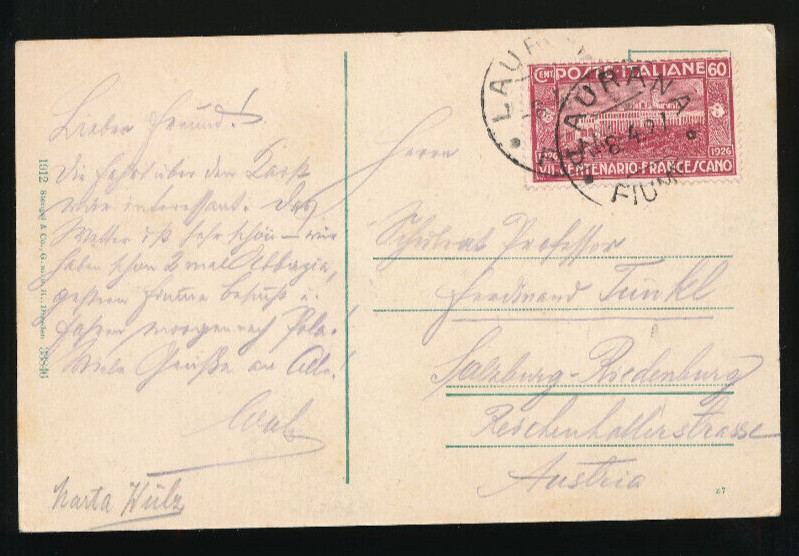 Lieber Freund!
Die Fahrt über den Karst
war interessant. Das
Wetter ist sehr schön – wir
haben schon 2 mal Abbazia,
gestern Fiume besucht u.
fahren morgen nach Pola.
Viele Grüße an Alle!
Marta Wülz
1912 Stengel & Co., G.m.b.H., Dresden 39846
CENT. POSTE ITALIANE 60
1926
VII CENTENARIO FRANCESCANO
LAURANA
FIUM
Herrn
Schulrat Professor
Ferdinand Funkl
Salzburg-Riedenburg
Reichenhallerstrasse
Austria